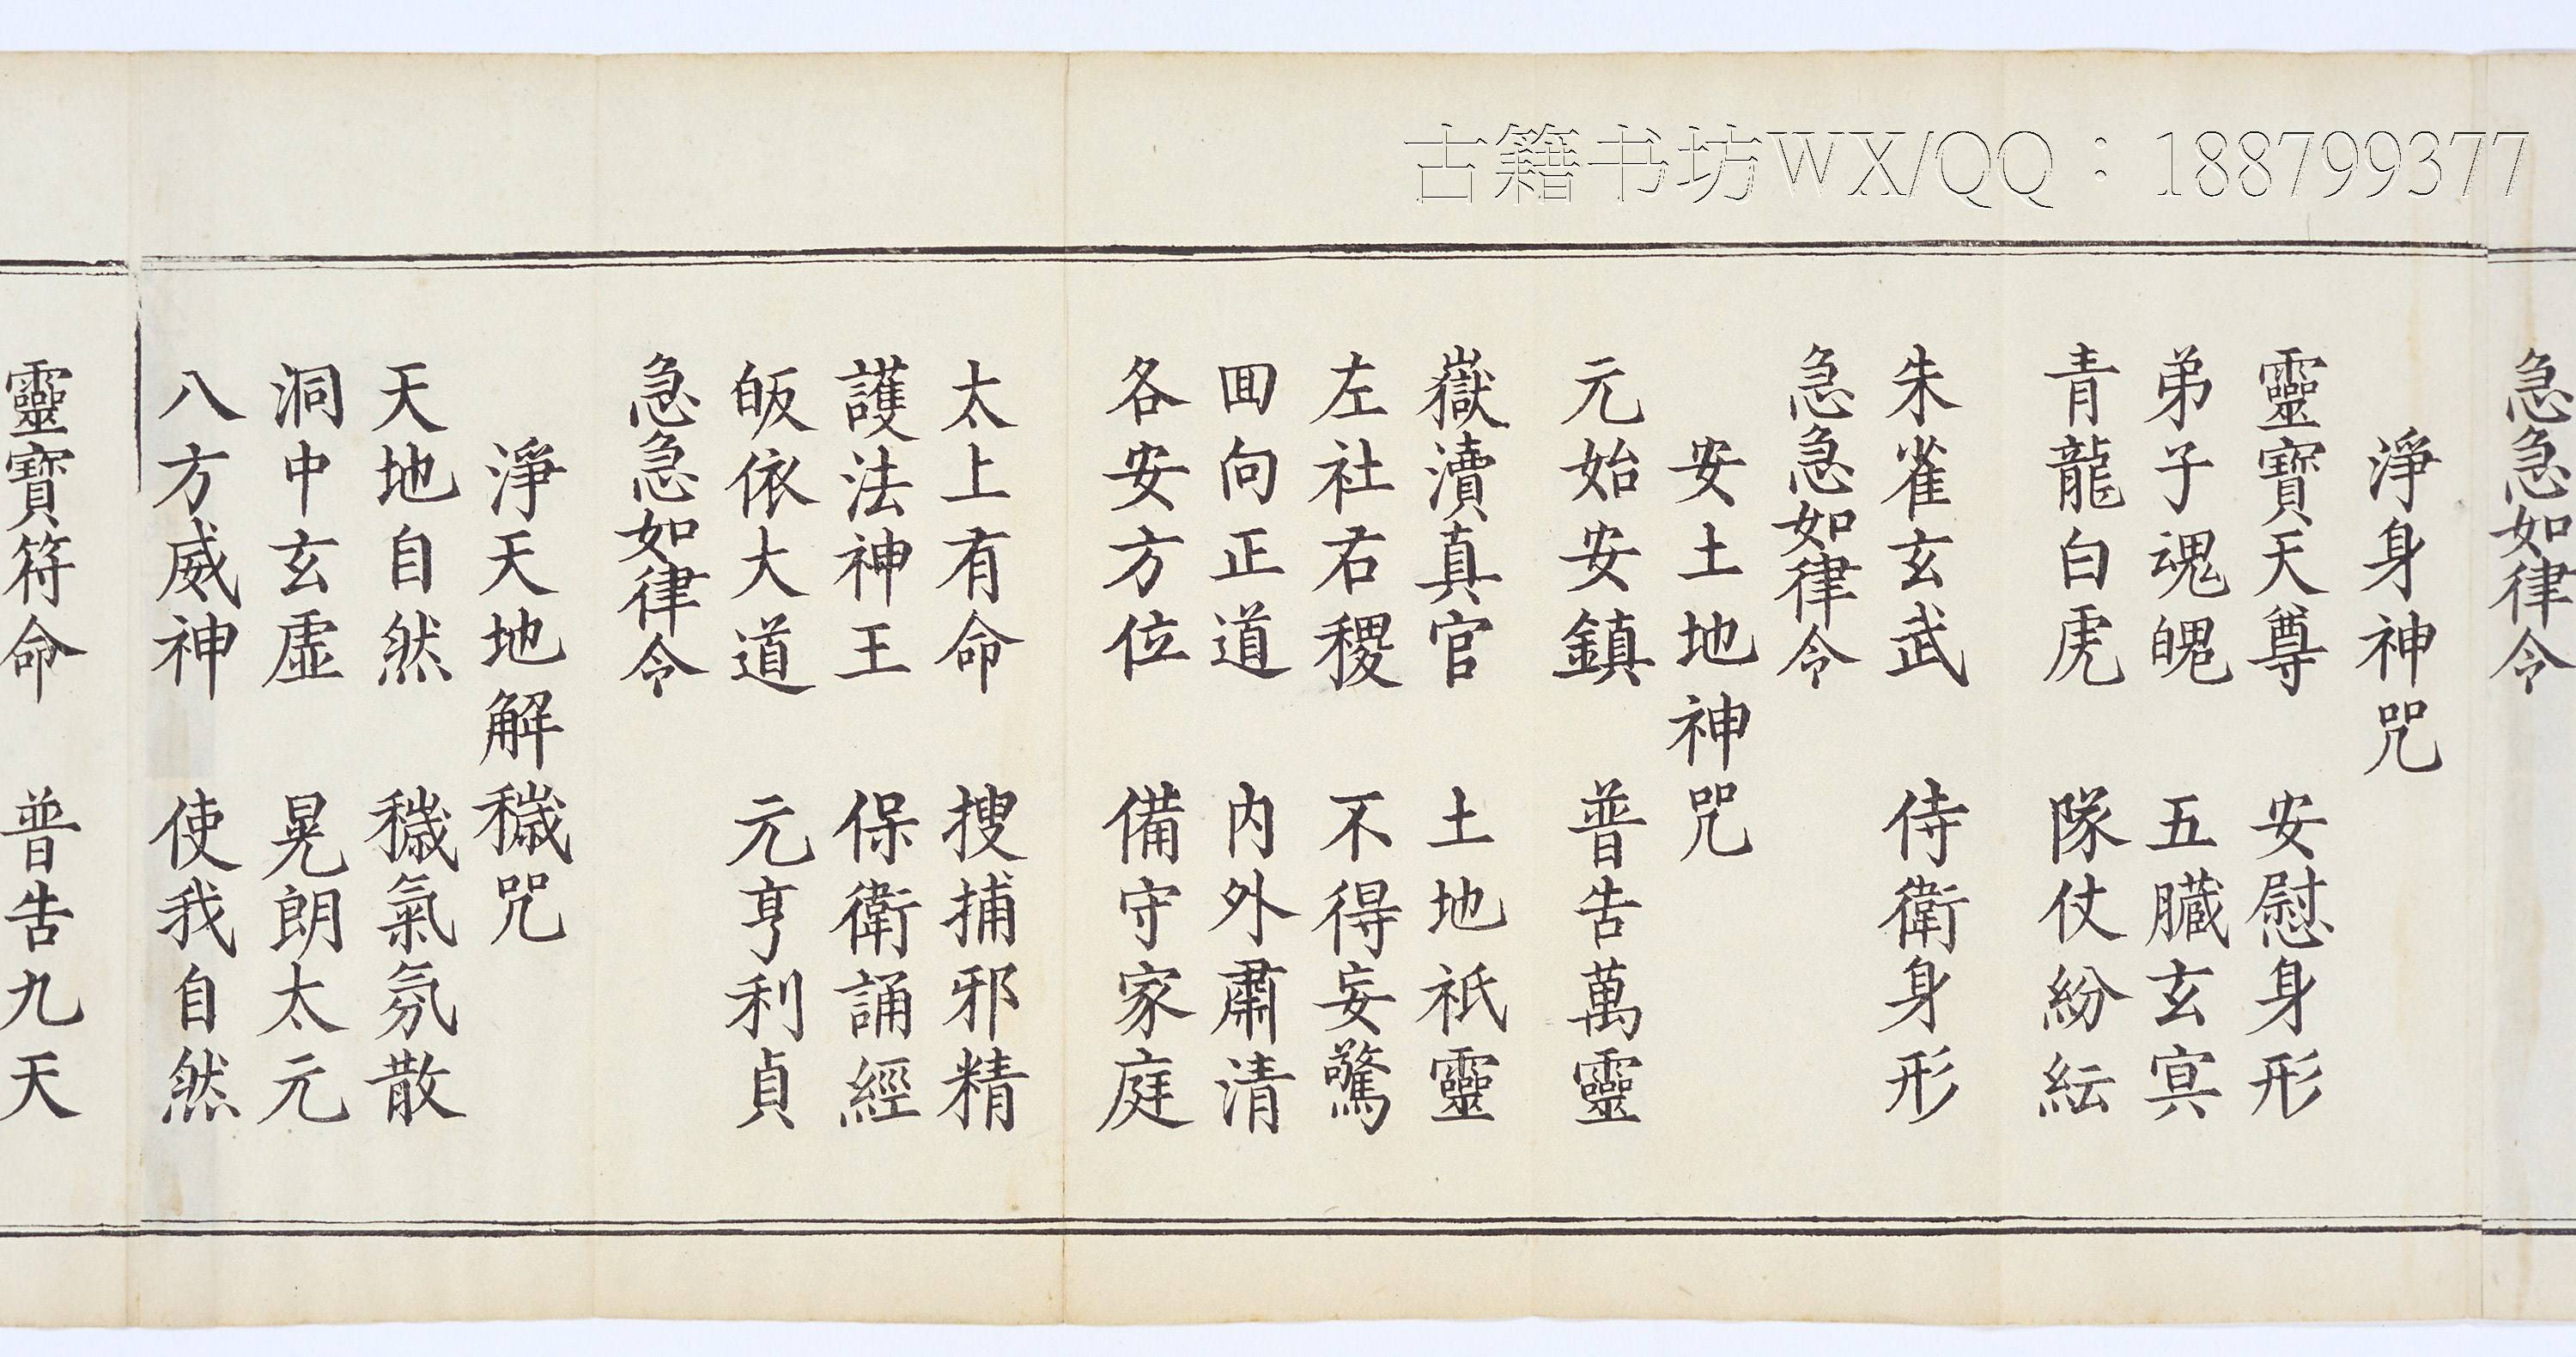 古籍书坊WX/QQ：188799377
急急如律令
淨身神咒
靈寶天尊　安慰身形
弟子魂魄　五臟玄冥
青龍白虎　隊仗紛紜
朱雀玄武　侍衛身形
急急如律令
安土地神咒
元始安鎮　普告萬靈
嶽瀆真官　土地祇靈
左社右稷　不得妄驚
囬向正道　内外肅清
各安方位　備守家庭
太上有命　搜捕邪精
護法神王　保衛誦經
皈依大道　元亨利貞
急急如律令
淨天地解穢咒
天地自然　穢氣氛散
洞中玄虛　晃朗太元
八方威神　使我自然
靈寶符命　普告九天